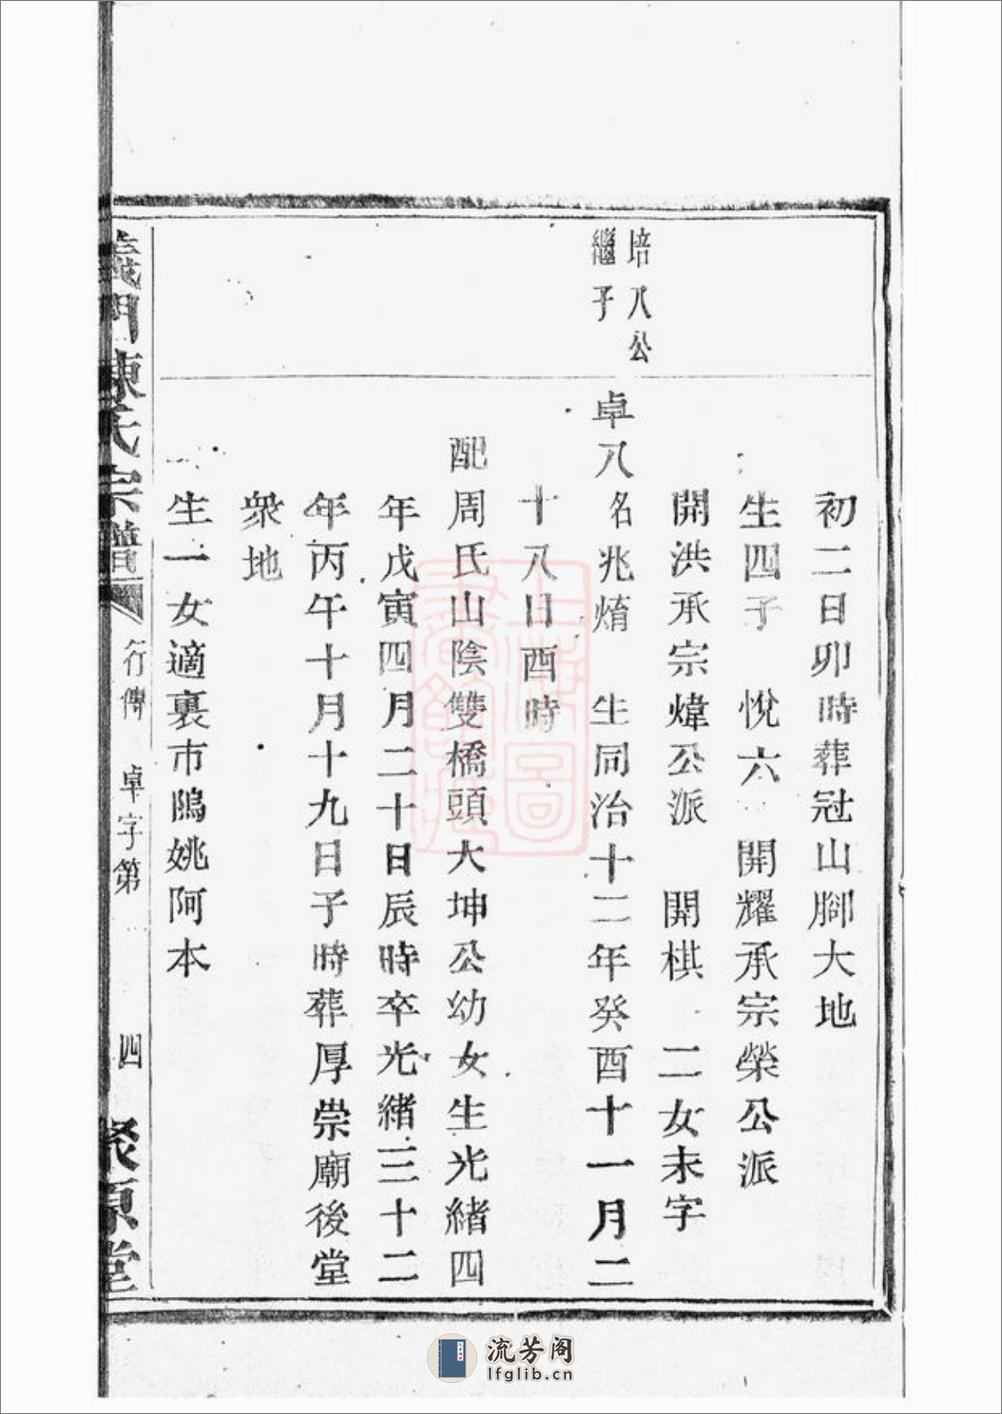 初二日卯時葬冠山腳大地
生四子 悅六 開耀承宗榮公派
開洪承宗煒公派 開棋 二女未字
培八公
繼子
卓八名兆焴 生同治十二年癸酉十一月二
十八日酉時
配周氏山陰雙橋頭大坤公幼女生光緒四
年戊寅四月二十日辰時卒光緒三十二
年丙午十月十九日子時葬厚崇廟後堂
衆地
生一女適裏市隖姚阿本
義門陳氏宗譜 行傳 卓字第 四 聚原堂
上海圖書館藏
流芳阁
lfglib.cn